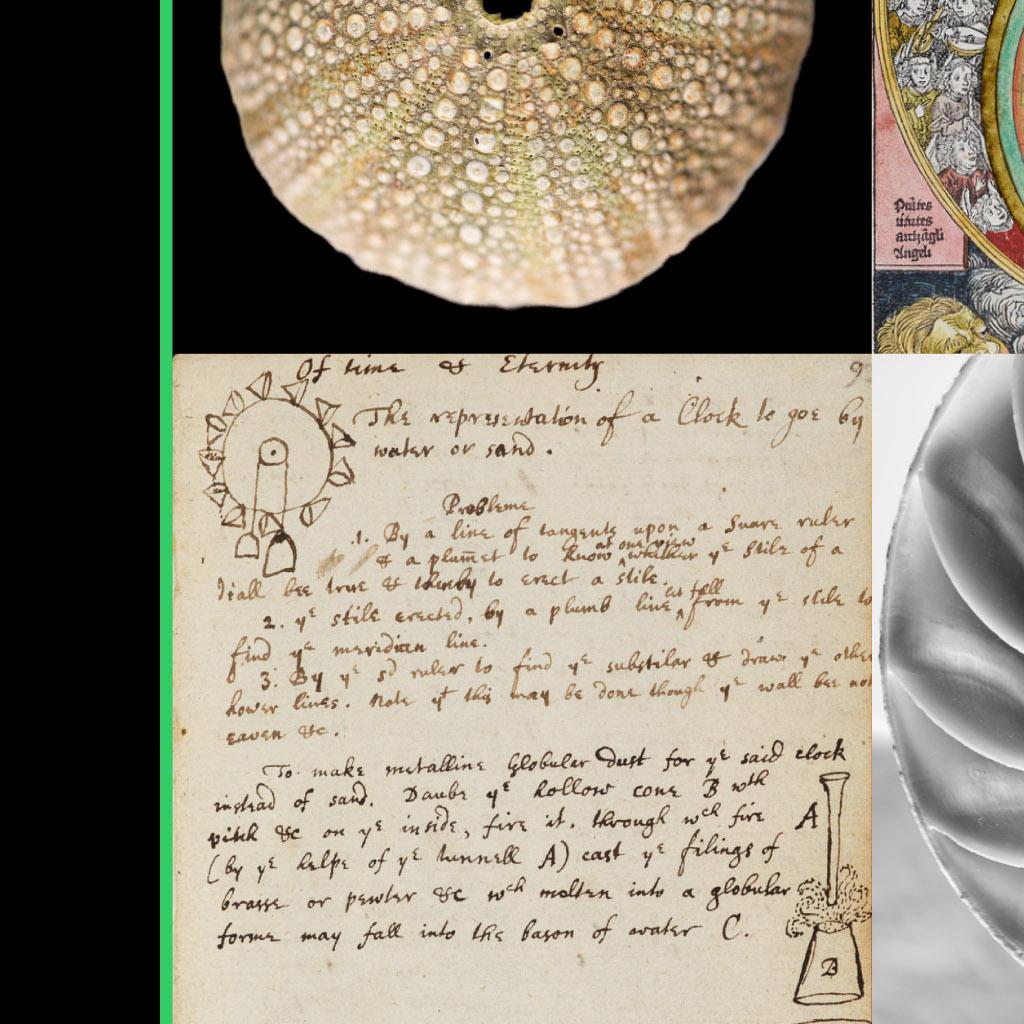 Of time & Eternity
9
The representation of a Clock to goe by
water or sand.
Probleme
.1. By a line of tangents upon a Square ruler
& a plum̄et to know at one view whither yᵉ stile of a
diall bee true & thereby to erect a stile.
2. yᵉ stile erected, by a plumb line let fall from yᵉ stile to
find yᵉ meridian line.
3. By yᵉ sᵈ ruler to find yᵉ substilar & draw yᵉ other
hower lines. Note yᵗ this may be done though yᵉ wall bee not
eaven &c.
To make metalline Globular dust for yᵉ said clock
instead of sand. Daube yᵉ hollow cone B wᵗʰ
pitch &c on yᵉ inside, fire it. through wᶜʰ fire
(by yᵉ helpe of yᵉ tunnell A) cast yᵉ filings of
brasse or pewter &c wᶜʰ molten into a globular
forme may fall into the bason of water C.
A
B
Angeli